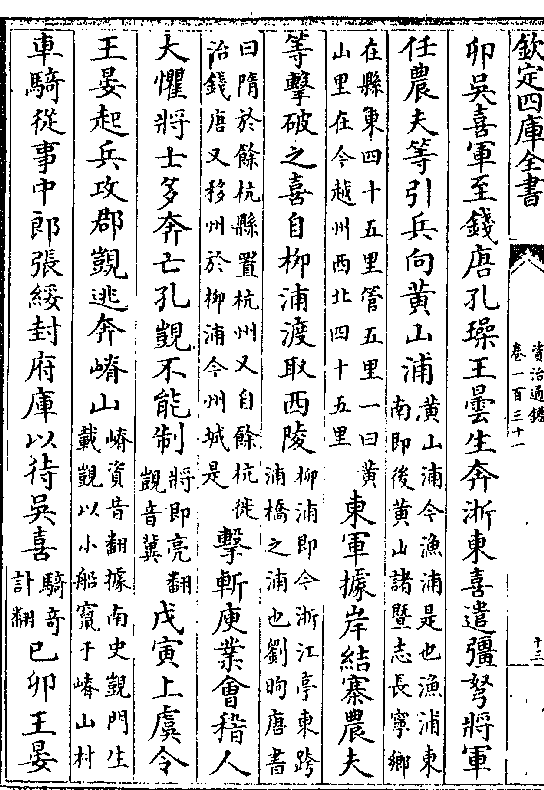 欽定四庫全書
資治通鑑
卷一百三十一
十三
卯吳喜軍至錢唐孔璪王曇生奔浙東喜遣彊弩將軍
任農夫等引兵向黃山浦
黃山浦今漁浦是也漁浦東
南即後黃山諸暨志長寧鄉
在縣東四十五里管五里一曰黃
山里在今越州西北四十五里
東軍據岸結寨農夫
等擊破之喜自柳浦渡取西陵
柳浦即今浙江亭東跨
浦橋之浦也劉昫唐書
曰隋於餘杭縣置杭州又自餘杭徙
治錢唐又移州於柳浦今州城是
擊斬庾業會稽人
大懼將士多奔亡孔覬不能制
將即亮翻
覬音冀
戊寅上虞令
王晏起兵攻郡覬逃奔嵴山
嵴資昔翻據南史覬門生
載覬以小船竄于嵴山村
車騎從事中郎張綏封府庫以待吳喜
騎奇
計翻
已卯王晏